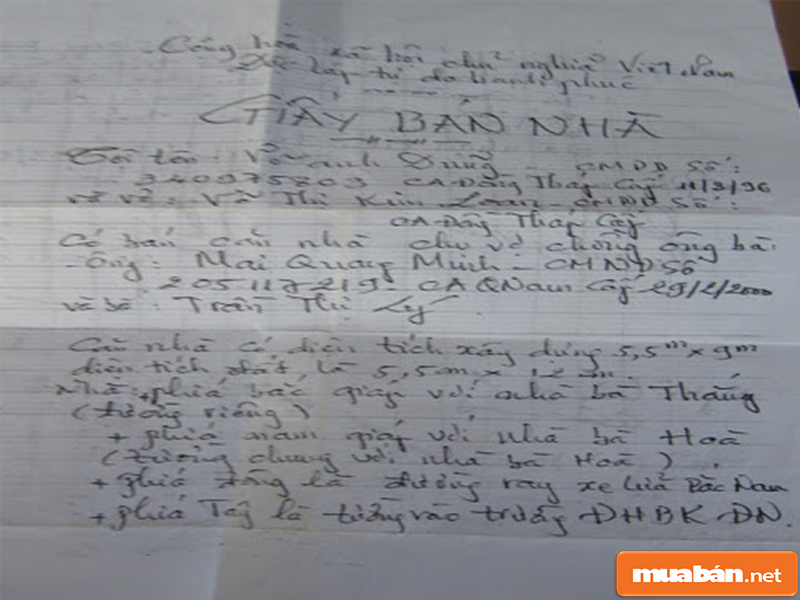 Cộng hòa xã hội chủ nghĩa Việt Nam
Độc lập tự do hạnh phúc
GIẤY BÁN NHÀ
Tôi tên: Võ Anh Dũng CMDD Số:
340975803 CA-Đồng Tháp Cấp 11/3/96
và vợ: Võ Thị Kim Loan - CMDD Số:
CA-Đồng Tháp Cấp
Có bán căn nhà cho vợ chồng ông bà:
- Ông: Mai Quang Minh - CMND Số
205117219 - CA QNam Cấy 29/2/2000
và bà: Trần Thị Lý.
Căn nhà có diện tích xây dựng 5,5m x 9m
diện tích đất là 5,5m x 12m
Nhà: + phía bắc giáp với nhà bà Thắng
(tường riêng)
+ phía nam giáp với nhà bà Hoà
(tường chung với nhà bà Hoà)
+ phía đông là đường ray xe lửa Bắc Nam
+ phía Tây là tường rào trường ĐHBK ĐN.
muabán.net